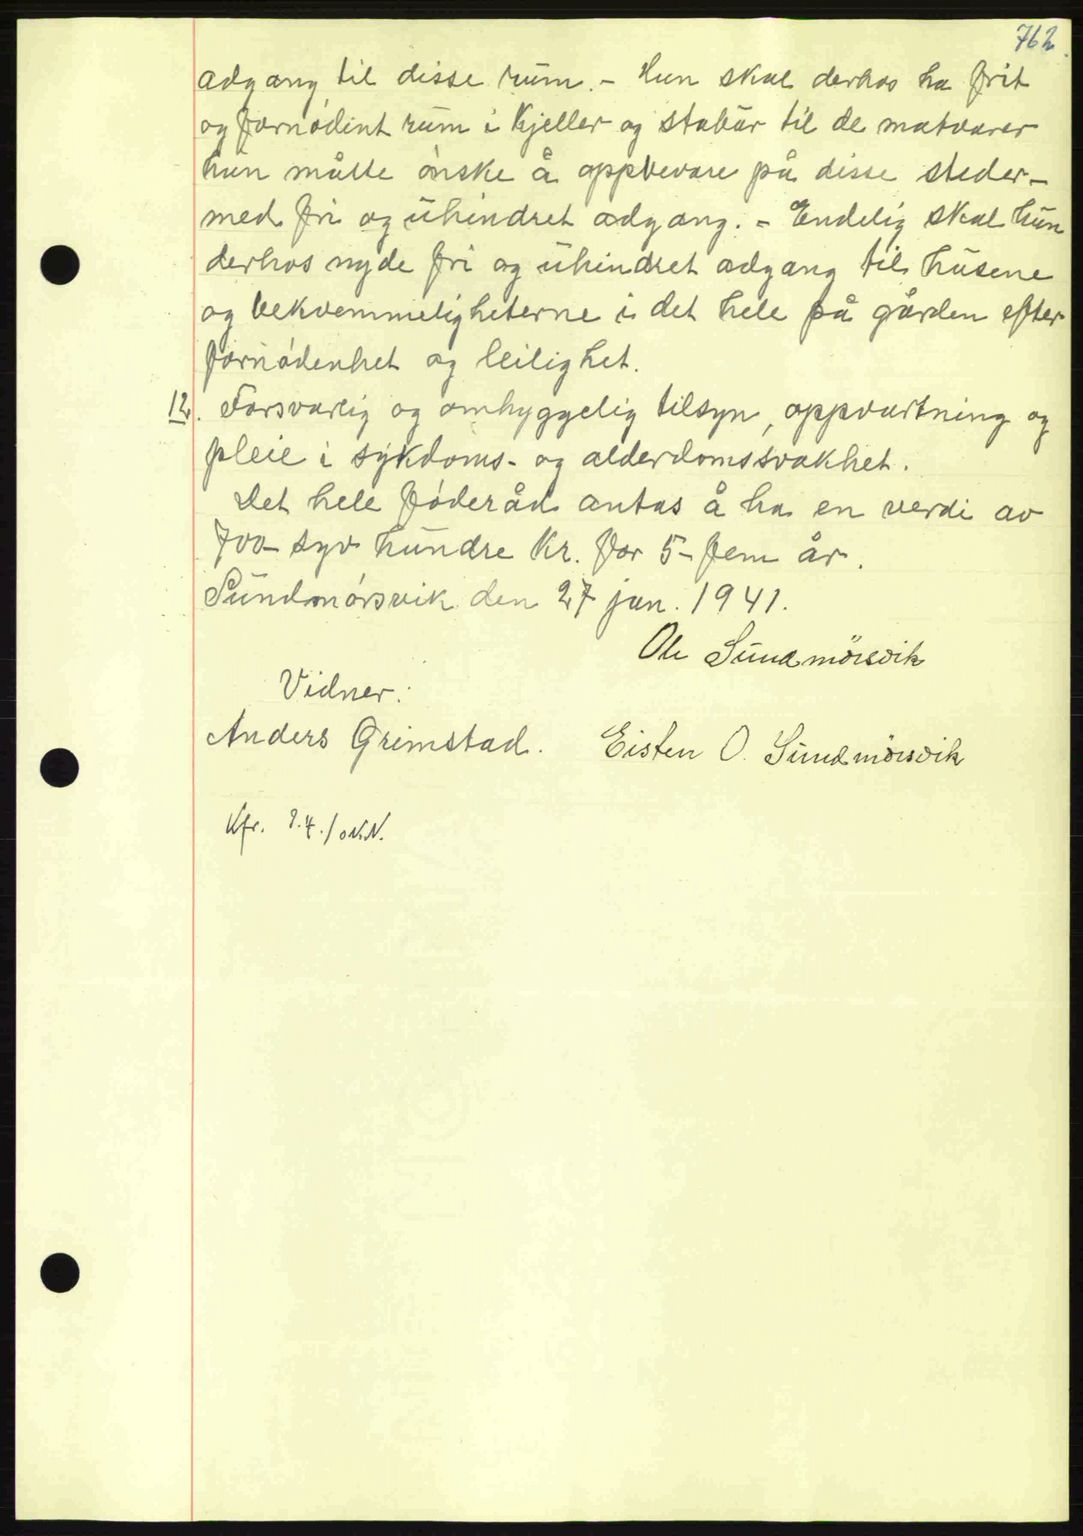 762.
adgang til disse rum. - Hun skal derhos ha frit
og fornødint rum i kjeller og stabur til de matvarer
hun måtte ønske å oppbevare på disse steder -
med fri og uhindret adgang. - Endelig skal hun
derhos nyde fri og uhindret adgang til husene
og bekvemmeligheterne i det hele på gården efter
fornødenhet og leilighet.
12. Forsvarlig og omhyggelig tilsyn, oppvartning og
pleie i sykdoms- og alderdomssvakhet.
Det hele føderåd antas å ha en verdi av
700 - syv hundre kr. for 5 - fem år.
Sundmørsvik den 27 jan. 1941.
Ole Sundmörsvik
Vidner:
Anders Grimstad. Eisten O. Sundmörsvik
Kfr.